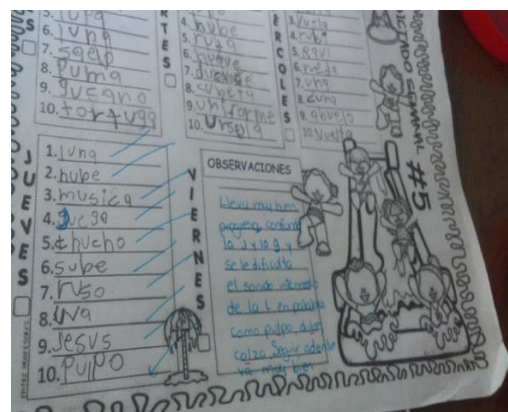 6. luna
8. puma
9. gucano
10. tortuga
4. nube
5. ruza
7. duende
8. cubeta
9. uniforme
10. Urspla
3. vuela
4. rubi
6. rueda
7. una
8. cuna
9. abuelo
10. vuelta
MARTES
MIERCOLES
DICTADO SEMANAL #5
JUEVES
1. luna
2. nube
3. musica
4. guega
5. chucho
6. sube
7. ruso
8. uva
9. Jesus
10. pulpo
VIERNES
OBSERVACIONES
Lleva muy buen
progreso, confunde
la J y la g y
se le dificulta
el sonido intermedio
de la L en palabras
como pulpo, dulce
calza. Seguir adelante
va muy bien